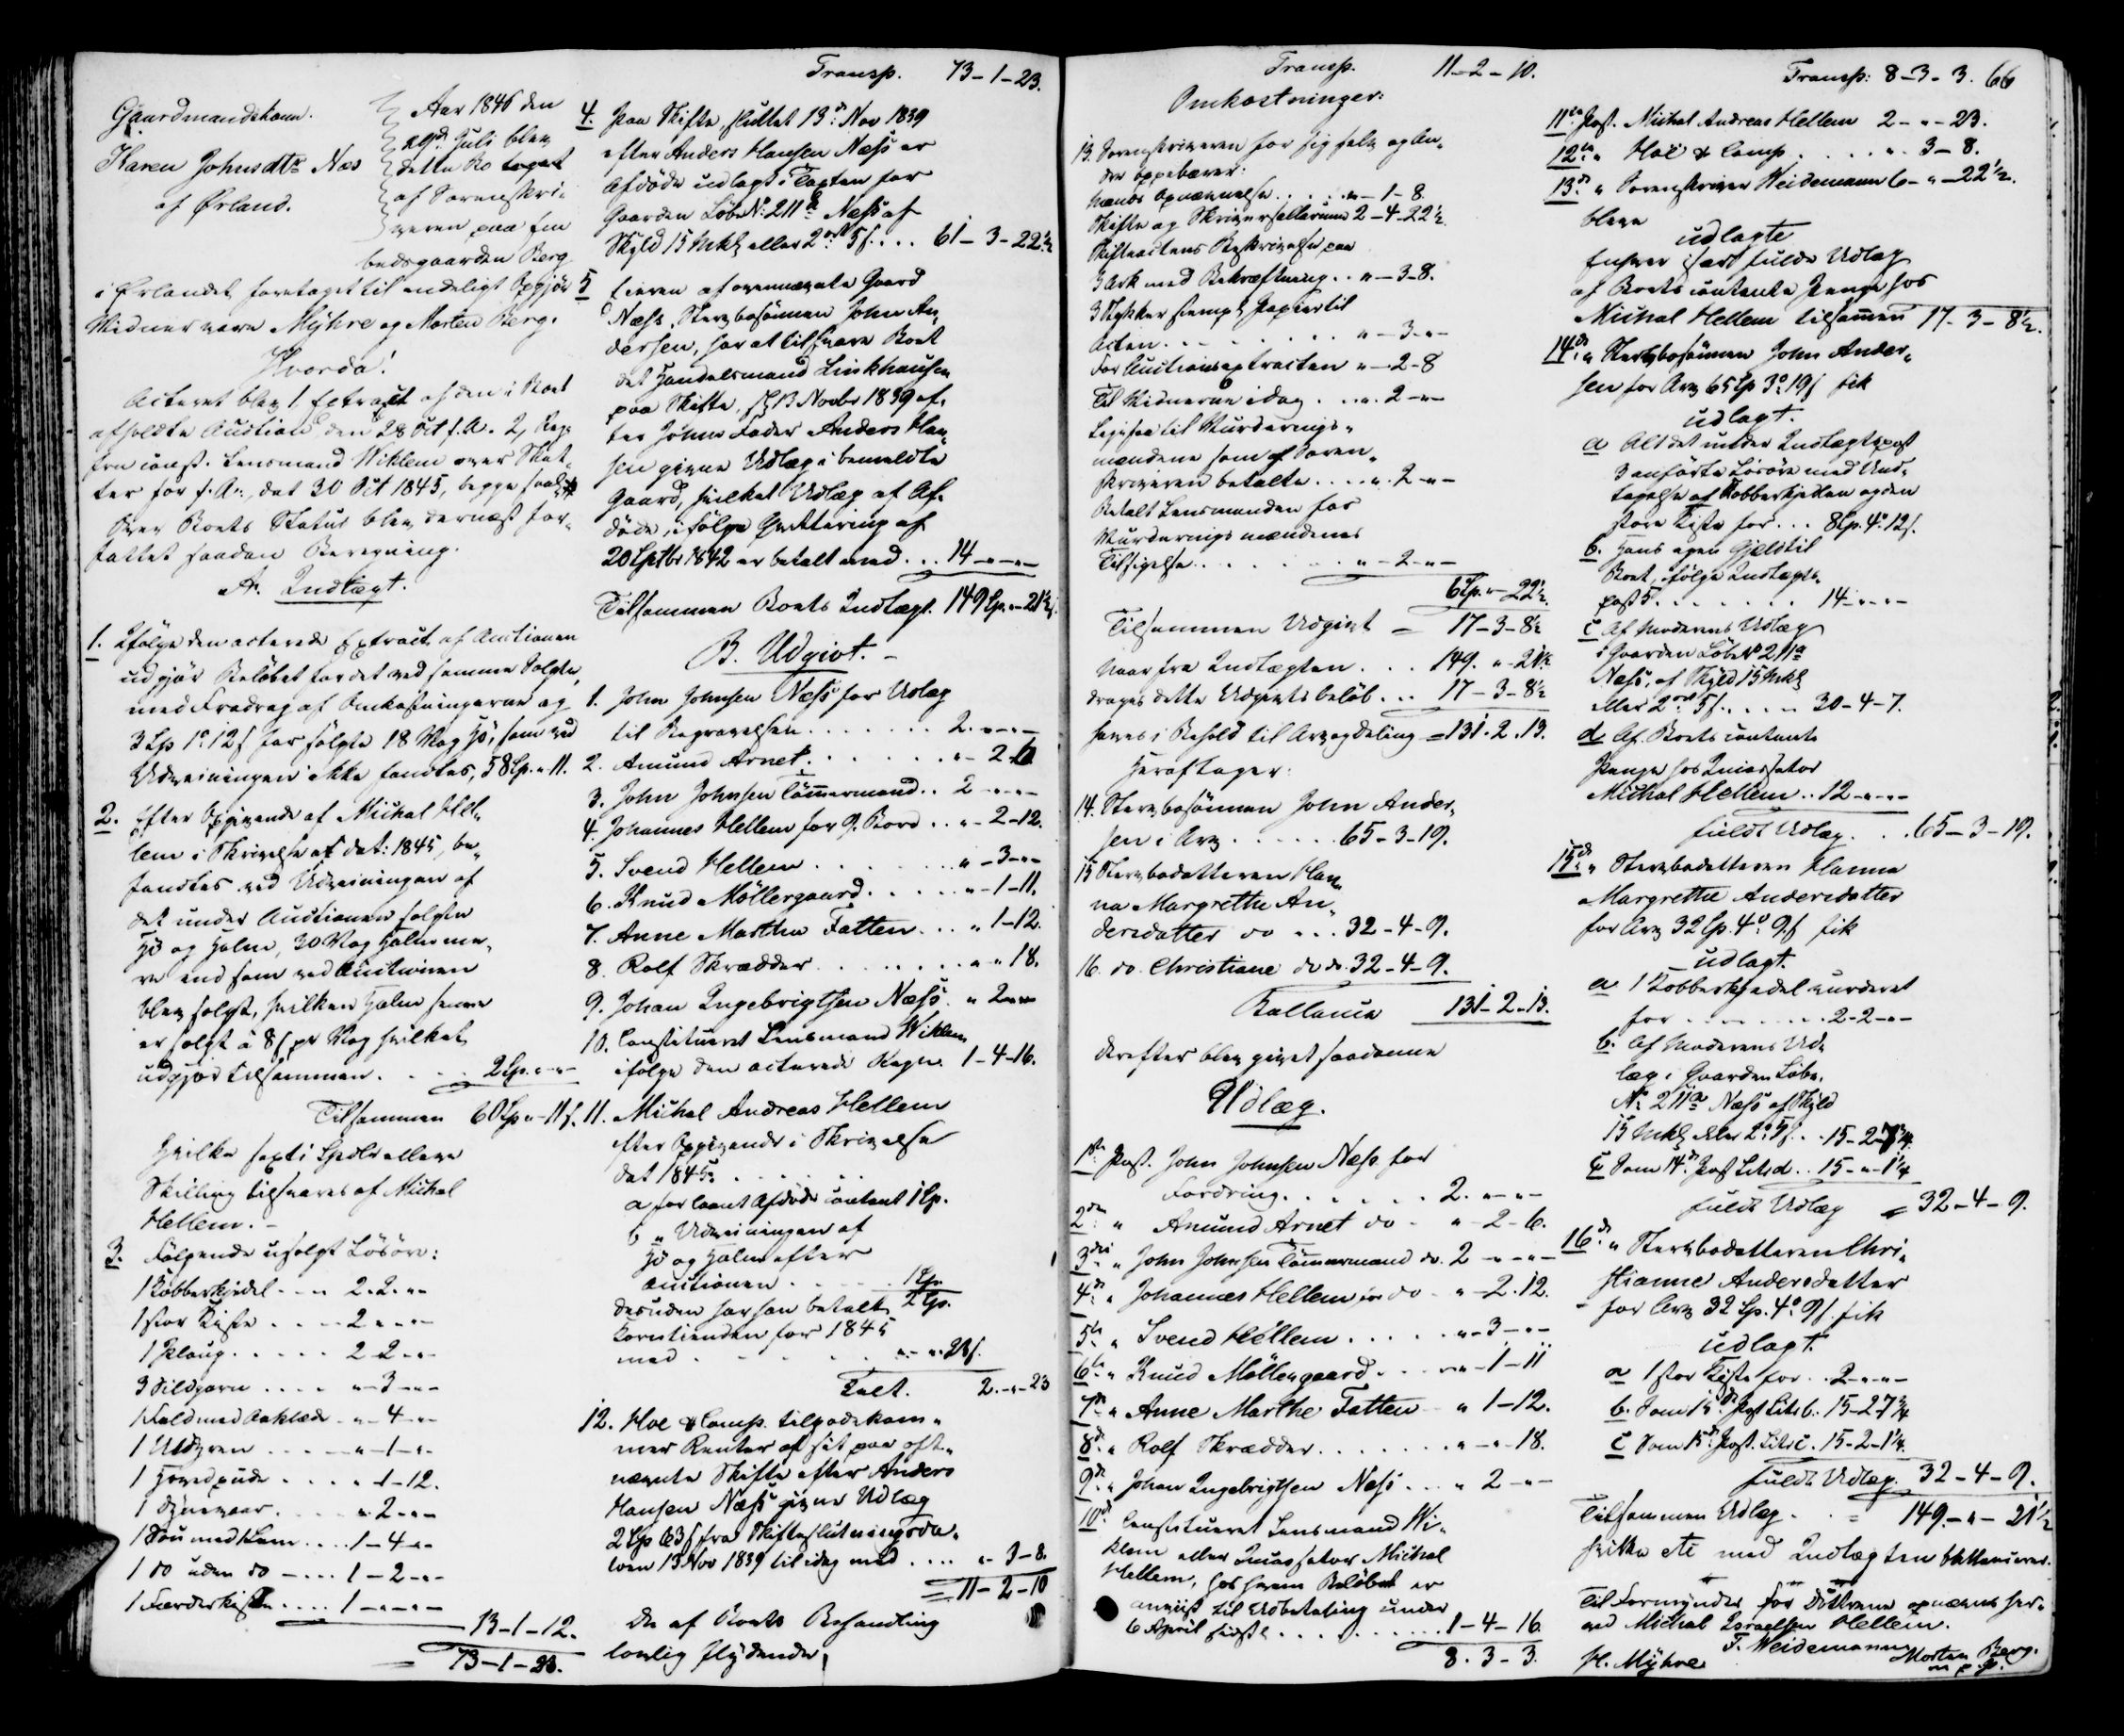 Gaardmandskone
Karen Johnsdtr Næs
af Ørland.
Aar 1846 den
29de Juli blev
dette Bo taget
af Sorenskri-
veren paa Em-
bedsgaarden Berg
i Ørlandet foretaget til endeligt Opgjør
Vidner vare Myhre og Morten Berg.
Hvorda!
Acteret blev 1, Extract af den i Boet
afholdte Auction den 28 Oct f. A. 2, Reg-
fra const. Lensmand Wiklem over Skat-
ter for f. A., dat 30 Oct 1845, begge
Over Boets Status blev dernæst for-
fattet saadan Beregning.
A. Indtægt.
1. Ifølge den acterede Extract af Auctionen
udgjør Beløbet for det ved samme Solgte,
med Fradrag af Omkostningerne og
3 Sp 1o 12 s for solgte 18 Vog Hø, som ved
Udveiningen ikke fandtes, 58 Sp. " 11.
2. Efter Opgivende af Michal Hel-
lem i Skrivelse af dat: 1845, be-
fandtes ved Udveiningen af
det under Auctionen solgte
Hø og Halm, 30 Vog Halm me-
re end som ved Auctionen
blev solgt, hvilken Halm senere
er solgt à 8 s pr Vog hvilket
udgjør tilsammen. . . . 2 Sp. " - "
Tilsammen 60 Sp " - 11 s.
Hvilke sexti Spdlr elleve
Skilling tilsvares af Michal
Hellem. -
3. Følgende usolgt Løsøre:
1 Kobberkjedel . . . 2. 2. " -
1 stor Kiste . . . . 2 - " - "
1 Ploug . . . . . 2 2 - " -
3 Sildgarn . . . . " - 3 - " -
1 Fald med Aaklæde . " - 4 - " -
1 Uldgren . . . . " - 1 - " -
1 Hovedpude . . . . " - 1 - 12.
1 Dynevaar . . . . " 2 - " -
1 Sou med Lam . . . . 1 - 4 - "
1 do uden do . . . . 1 - 2 - " -
1 Færderkiste . . . . 1 - " - " -
13 - 1 - 12.
= 73 - 1 - 23.
Transp. 73 - 1 - 23.
4. Paa Skifte, sluttet 13de Nov 1839
efter Anders Hansen Næss er
Afdøde udlagt i Fasten for
Gaarden Løbe No 211a Næss af
Skyld 15 Mkl eller 2 ort 5 s . . . 61 - 3 - 22 1/2
5. Eieren af ovennævnte Gaard
Næss, Stervbosønnen John An-
dersen, har at tilsvare Boet
det Handelsmand Linkhausen
paa Skifte, sl. 13 Novbr 1839 ef-
ter Johns Fader Anders Han-
sen givne Udlæg i bemeldte
Gaard, hvilket Udlæg af Af-
døde, ifølge Qvittering af
20 Septbr 1842 er betalt med . . . 14 - " - " -
Tilsammen Boets Indtægt. 149 Sp. " - 21 1/2 s.
B. Udgivt. -
1. John Johnsen Næss for Udlæg
til Begravelsen . . . . . . . 2. - " - " -
2. Amund Arnet . . . . . . " - 2 - 6
3. John Johnsen Tömmermand . . 2 - " - " -
4. Johannes Hellem for 9 Bord . . " - 2 - 12.
5. Svend Hellem . . . . . . . " - 3 - " -
6. Knud Möllergaard . . . . . " - 1 - 11.
7. Anne Martha Fatten . . . " 1 - 12.
8. Rolf Skrædder . . . . . . " " 18.
9. Johan Ingebrigtsen Næss . " 2 - " -
10. Constitueret Lensmand Wiklem
ifølge den acterede Regn. 1 - 4 - 16.
11. Michal Andreas Hellem
efter Opgivende i Skrivelse
dat 1845: . . . . . .
a for laant Afdøde contant 1 Sp.
b " Udveiningen af
Hø og Halm efter
Auctionen . . . . . 1 Sp.
2 Sp.
desuden har han betalt
Korntienden for 1845
med . . . . . . . " - " - 23 s.
Talt. 2. - " - 23
12. Hoe & Comp. tilgodekom-
mer Renter af sit paa oft-
nævnte Skifte efter Anders
Hansen Næss givne Udlæg
2 Sp 63 s fra Skifteslutningsda-
toen 13 Nov 1839 til idag med . . . . " - 3 - 8.
= 11 - 2 - 10
De af Boets Behandling
lovlig flydende,
Transp. 11 - 2 - 10.
Omkostninger:
13. Sorenskriveren for sig selv og An-
dre oppebærer:
Mænds Opnævnelse . . . . " - 1 - 8.
Skifte og Skriversallarium 2 - 4 - 22 1/2
Skifteactens Beskrivelse paa
3 Ark med Bekræftning . . " - 3 - 8.
3 Stykker stempl. Papier til
Acten . . . . . . . . " - 3 - " -
For Auctionsextracten " - 2 - 8
Til Vidnerne idag . . " . 2 - " -
Ligesaa til Vurderings-
mændene som af Soren-
skriveren betalte . . . . " . 2 - " -
Betalt Lensmanden for
Vurderingsmændenes
Tilsigelse . . . . . . . " - 2 - " -
6 Sp. " - 22 1/2.
Tilsammen Udgivt = 17 - 3 - 8 1/2
Naar fra Indtægten . . . 149. " - 21 1/2
drages dette Udgivtsbeløb . . 17 - 3 - 8 1/2
haves i Behold til Arvogdeling = 131. 2. 13.
Heraf tager:
14. Stervbosønnen John Ander-
sen i Arv . . . . . 65 - 3 - 19.
15 Stervbodatteren Han-
na Margrethe An-
dersdatter do . . . 32 - 4 - 9.
16. do. Christiane do do 32 - 4 - 9.
Ballance 131 - 2 - 13.
Derefter blev givet saadanne
Udlæg.
1ste Post. John Johnsen Næss for
Fordring . . . . . . 2. " - " -
2den " Amund Arnet do - " - 2 - 6.
3die " John Johnsen Tömmermand do. 2 - " - " -
4de " Johannes Hellem for do - " - 2. 12.
5te " Svend Hellem . . . . . " - 3 - " -
6te " Knud Möllergaard . . . " - 1 - 11
7de " Anne Marthe Fatten " 1 - 12.
8de " Rolf Skrædder . . . . . . " - " - 18.
9de " Johan Ingebrigtsen Næss . . . " 2 - " -
10de Constitueret Lensmand Wi-
klem eller Incassator Michal
Hellem, hos hvem Beløbet er
anviist til Udbetaling under
6 April sidstl. . . . . . . . . 1 - 4 - 16.
8. 3 - 3.
Transp: 8 - 3 - 3. 66
11te Post. Michal Andreas Hellem 2 - " - 23.
12te " Hoe & Comp . . . . . " . 3 - 8.
13de " Sorenskriver Weidemann 6 - " - 22 1/2.
bleve
udlagte
Enhver især fulde Udlæg
af Boets contante Penge hos
Michal Hellem tilsammen 17 - 3 - 8 1/2.
14de " Stervbosönnen John Ander-
sen for Arv 65 Sp 3o 19 s fik
udlagt.
a Alt det under Indtægtspost
3 anførte Løsøre med Und-
tagelse af Kobberkjedlen og den
store Kiste for . . . 8 Sp. 4o 12 s.
b. Hans egen Gjeld til
Boet, ifølge Indtægts-
post 5 . . . . . . . 14 - " - " -
c Af Moderens Udlæg
i Gaarden Løbe No 211a
Næss, af Skyld 15 Mkl
eller 2 ort 5 s . . . . . 30 - 4 - 7.
d Af Boets contante
Penge hos Incassator
Michal Hellem . . 12 - " - " -
fuldt Udlæg . . . 65 - 3 - 19.
15de " Stervbodatteren Hanna
Margrethe Andersdatter
for Arv 32 Sp. 4o 9 s fik
udlagt.
a 1 Kobberkjedel vurderet
for . . . . . . . . 2 - 2 - " -
b. Af Moderens Ud-
læg i Gaarden Løbe-
No 211a Næss af Skyld
15 Mkl eller 2o 5 s . . 15 - 2 - 7 3/4
c Som 14de Post Litr d . . 15 - " - 1 1/4
fuldt Udlæg = 32 - 4 - 9.
16de " Stervbodatteren Chri-
stianne Andersdatter
for Arv 32 Sp. 4o 9 s. fik
udlagt.
a 1 stor Kiste for . . 2 - " - " -
b. Som 15de Post Litr b. 15 - 2 - 7 3/4
c Som 15de Post. Litr c. 15 - 2 - 1 1/4.
fuldt Udlæg. 32 - 4 - 9.
Tilsammen Udlæg . . = 149. - " - 21 1/2
hvilke etc med Indtægten ballancerer.
Til Formynder for Döttrene opnævnes her-
ved Michal Israelsen Hellem.
F. Weidemann
H. Myhre Morten Berg.
m. p. P.